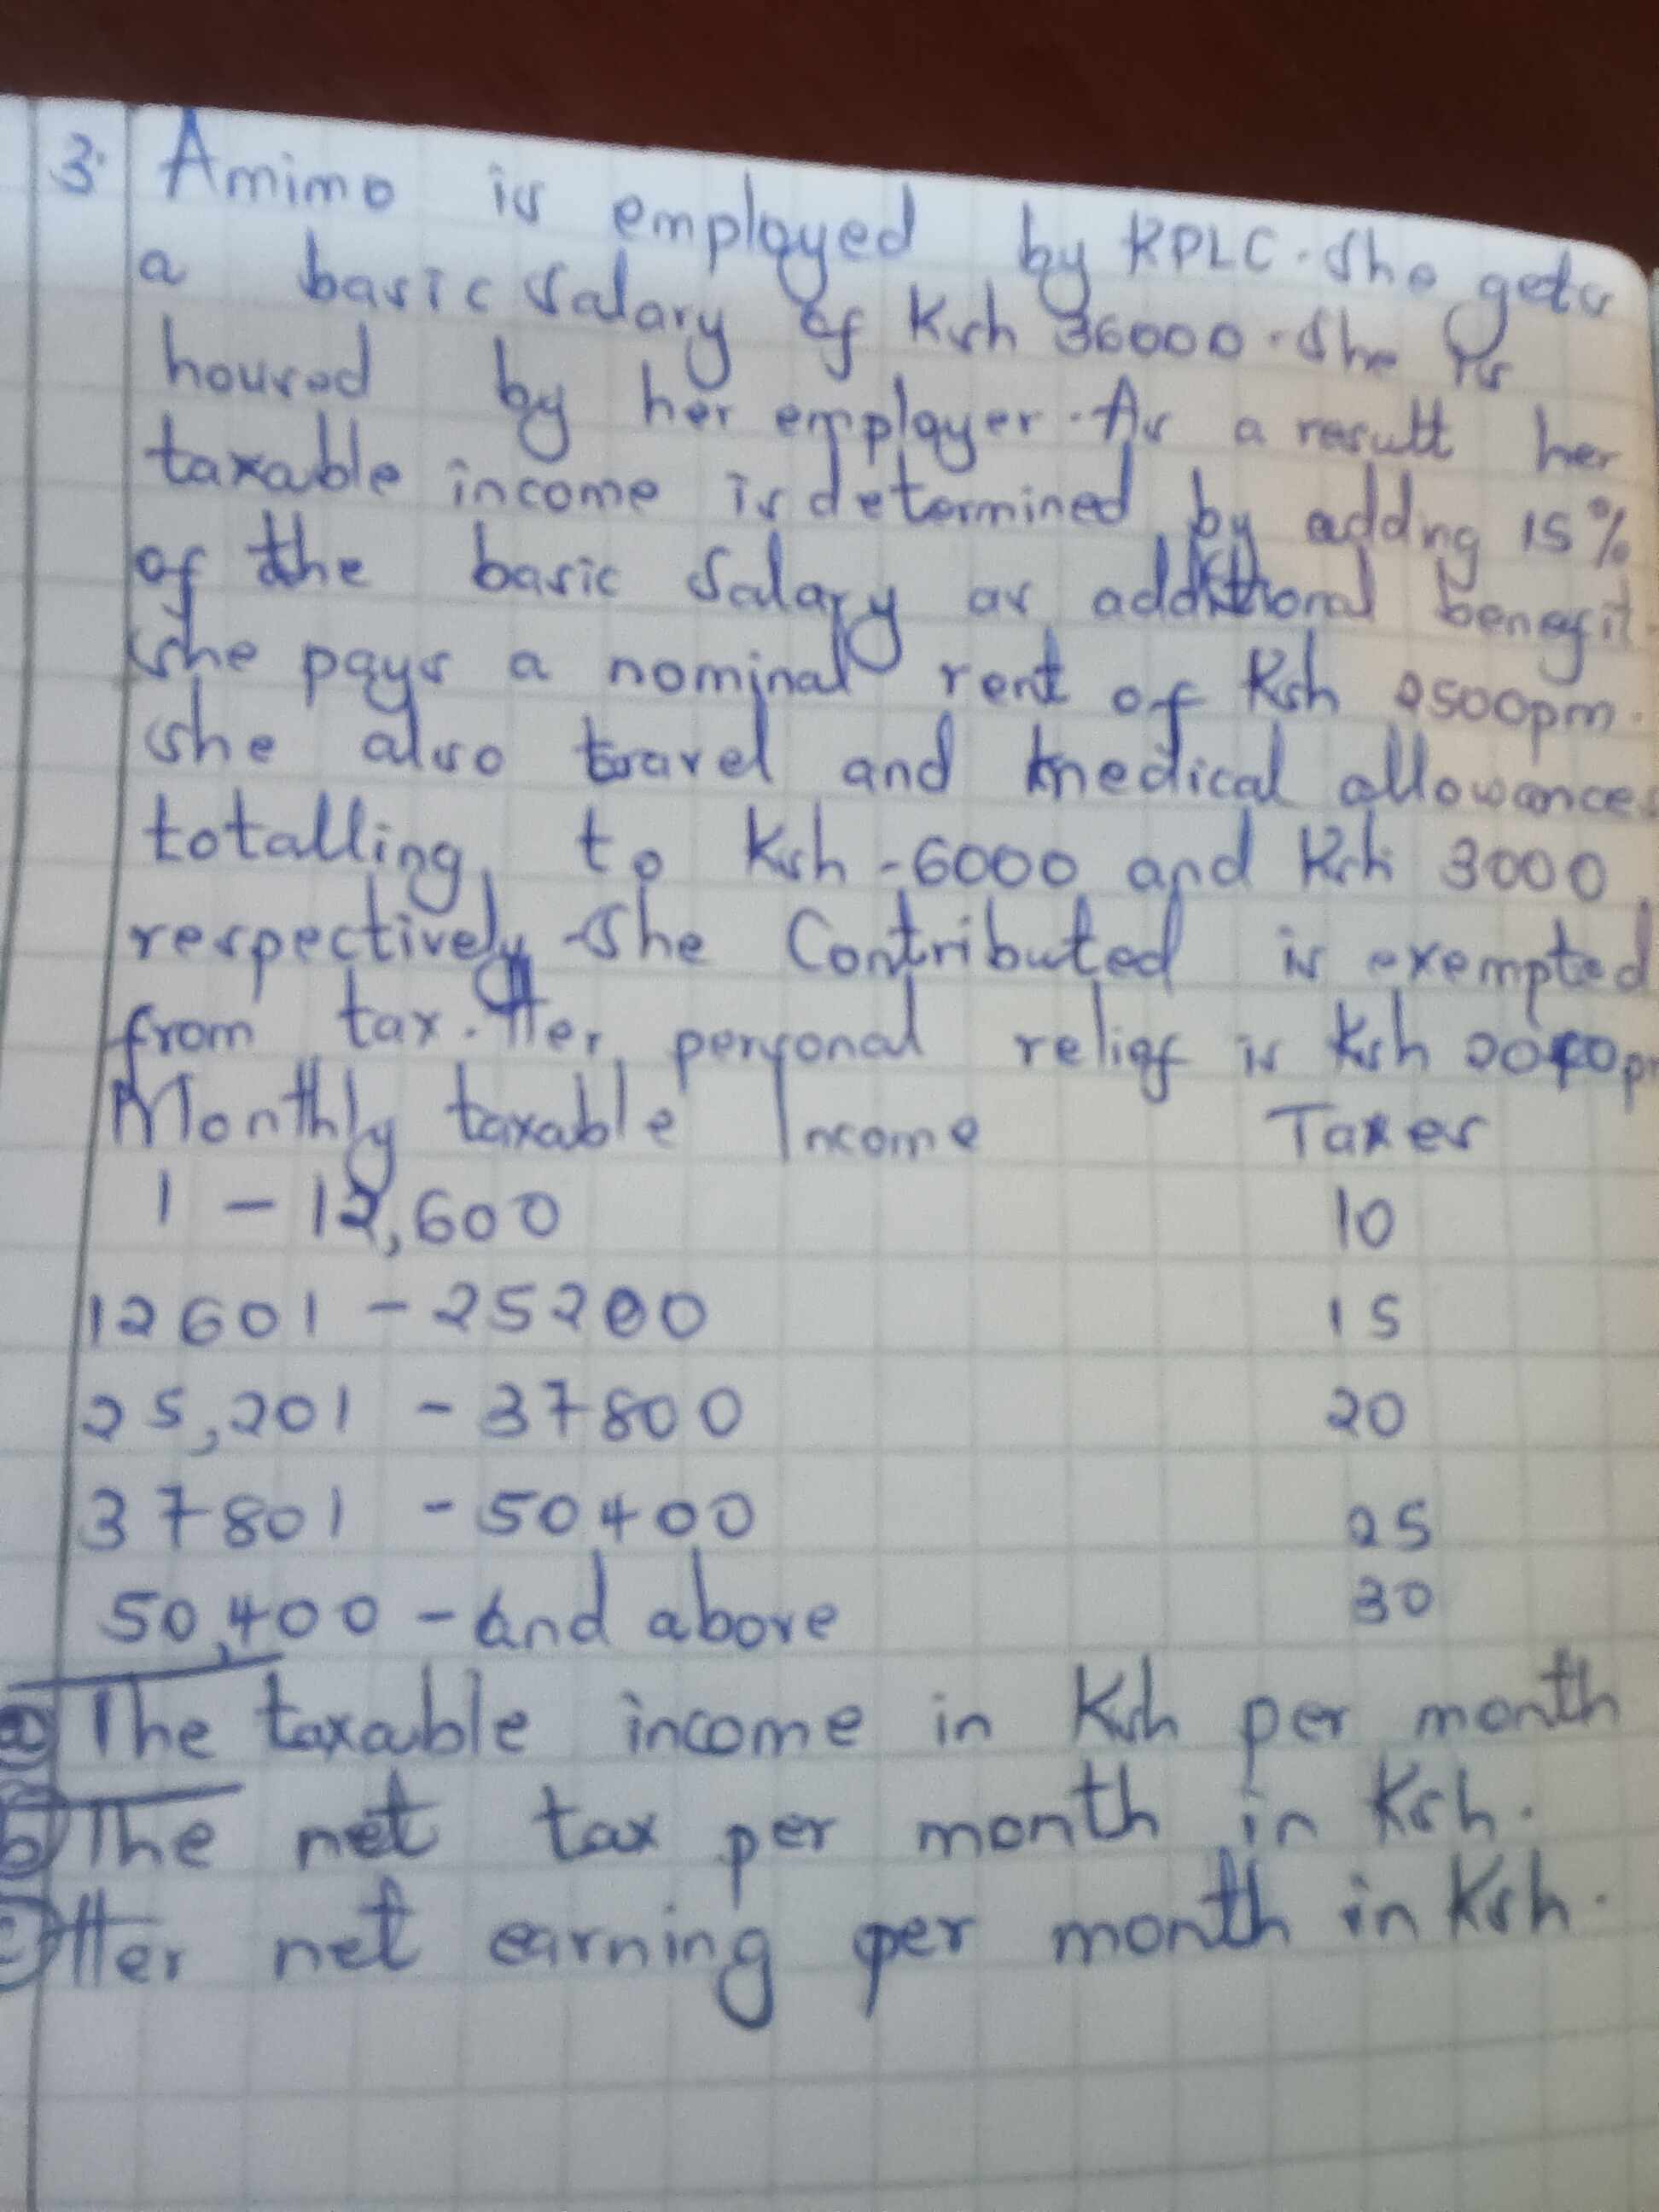 3. Amimo is employed by KPLC. She gets
a basic salary of Ksh 36000. She is
housed by her employer. As a result her
taxable income is determined by addng 15%
of the basic salary as additional benefit.
She pays a nominal rent of Ksh 2500pm.
She also travel and medical allowances
totalling to Ksh -6000 and Ksh 3000
respectively. She Contributed is exempted
from tax. Her personal relief is Ksh
Monthly taxable Income Taxes
1 - 12,600 10
12601 - 25200 15
25,201 - 37800 20
37801 - 50400 25
50,400 - And above 30
a) The taxable income in Ksh per month
b) The net tax per month in Ksh.
c) Her net earning per month in Ksh.